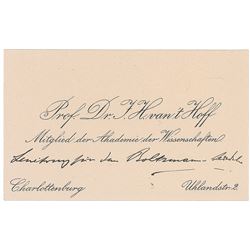 Prof. Dr. J. H. van 't Hoff
Mitglied der Akademie der Wissenschaften
für den Boltzmann-
Charlottenburg Uhlandstr. 2